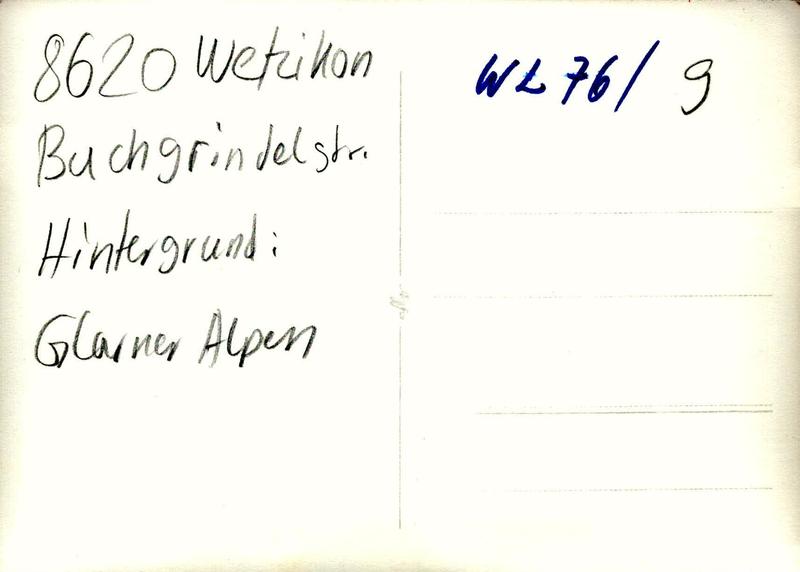 8620 Wetzikon
Buchgrindelstr.
Hintergrund:
Glarner Alpen
WL 76/ 9